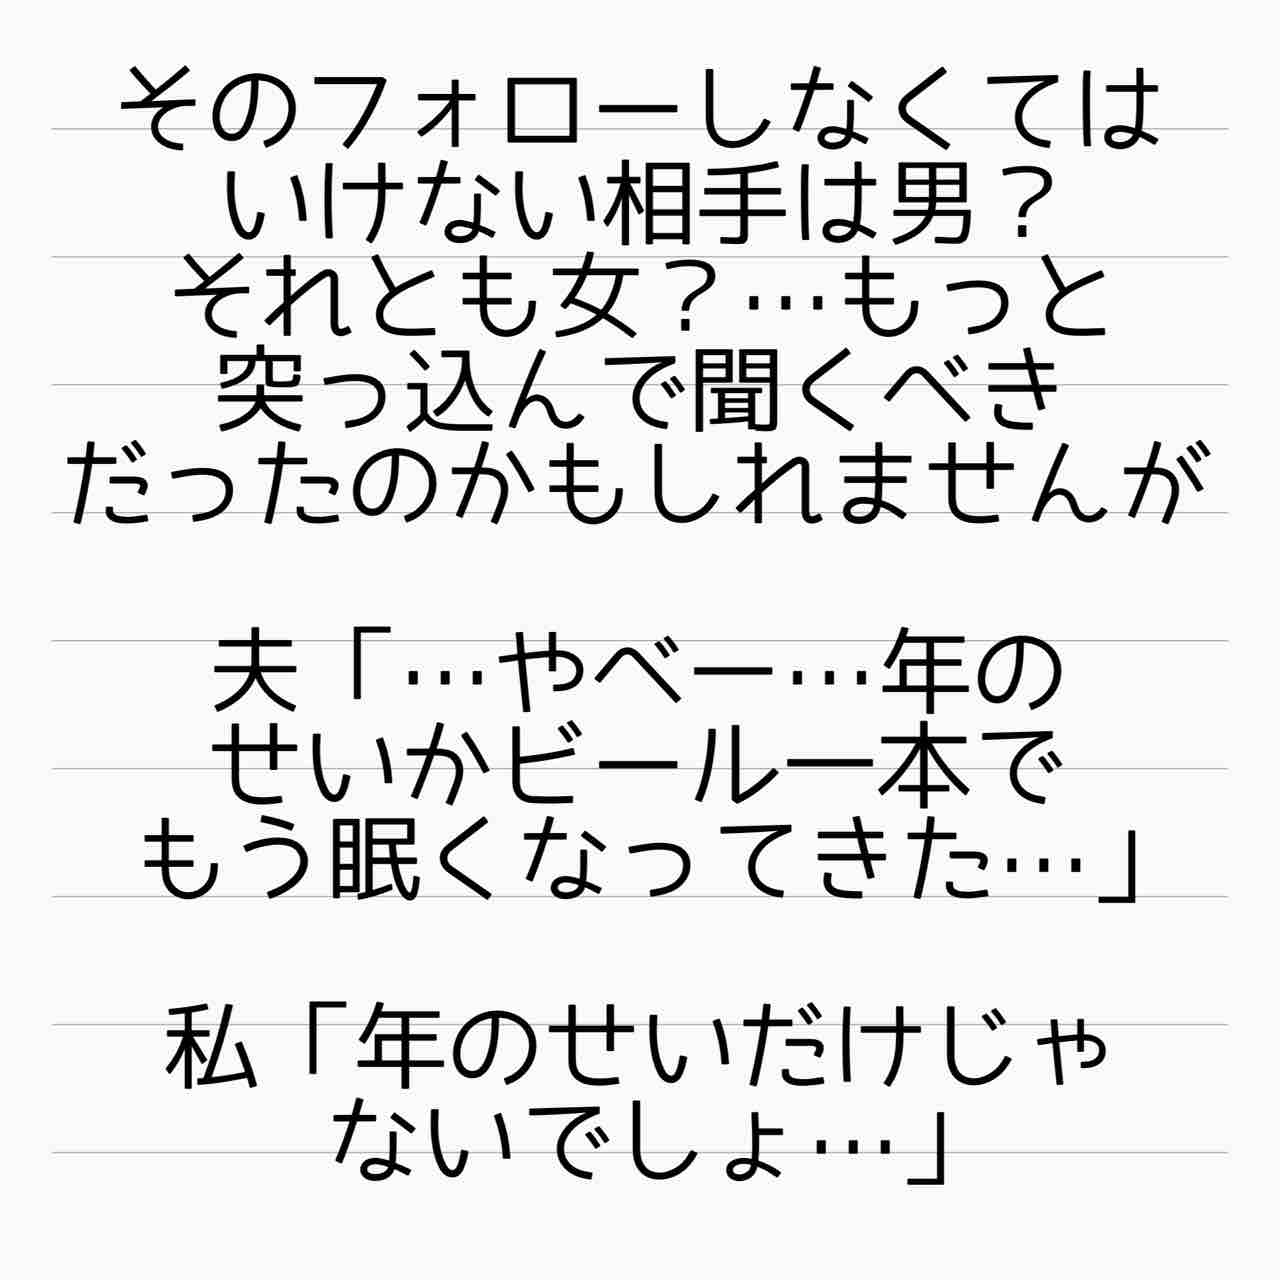 そのフォローしなくては
いけない相手は男？
それとも女？…もっと
突っ込んで聞くべき
だったのかもしれませんが
夫「…やべー…年の
せいかビール一本で
もう眠くなってきた…」
私「年のせいだけじゃ
ないでしょ…」